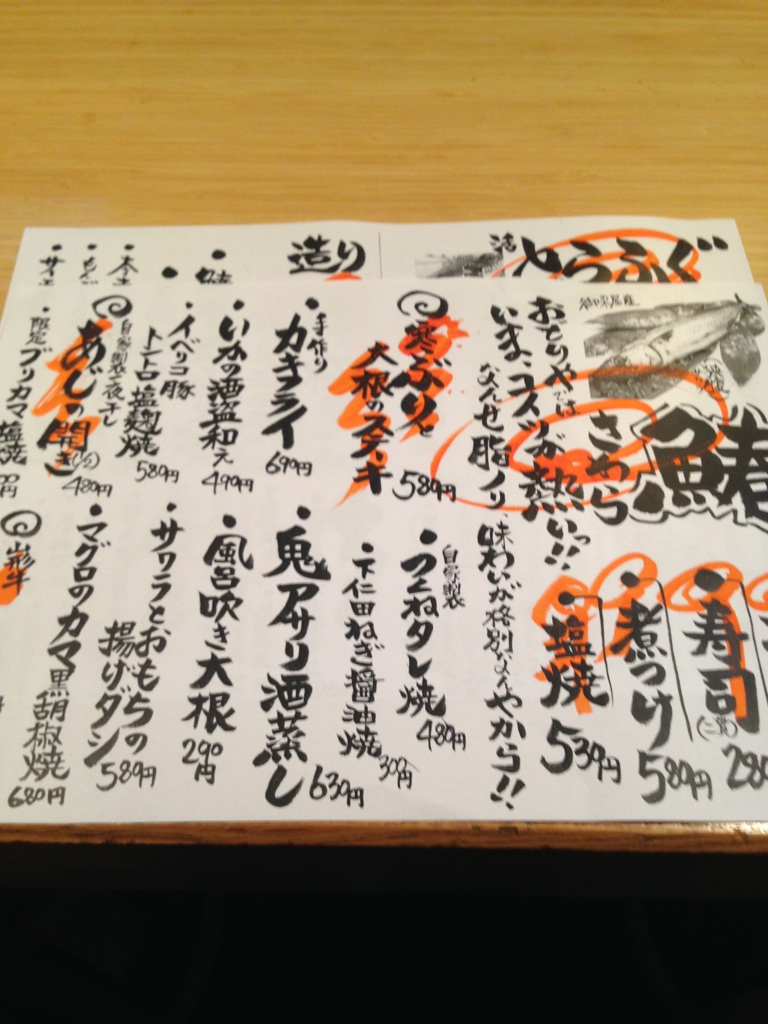 活とらふぐ
造り
御宗屋産
鰆
さわら
おとりやでは
いま、コイツが熱いっ!!
なんせ脂ノリ、味わいが格別なんやから!!
・寿司(二貫)
280
・煮つけ
580円
・塩焼
530円
寒ぶりと
大根のステーキ
580円
自家製
・つくねタレ焼
480円
・下仁田ねぎ醤油焼
300円
手作り
・カキフライ
690円
・鬼アサリ酒蒸し
630円
・いかの酒盗和え
490円
・風呂吹き大根
290円
・イベリコ豚
トントロ塩麹焼
580円
・サワラとおもちの
揚げダシ
580円
自家製一夜干し
あじの開き
480円
・マグロのカマ黒胡椒焼
680円
・限定ブリカマ塩焼
円
山形牛